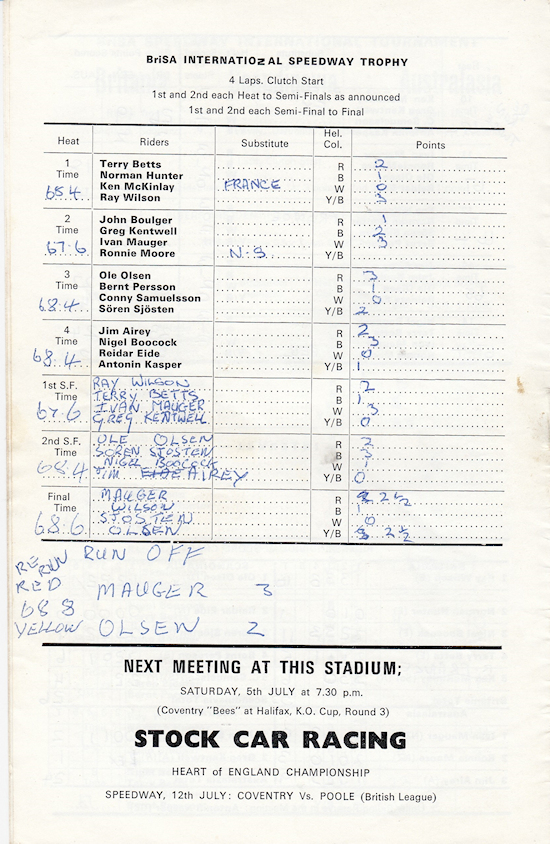 BriSA INTERNATIOZAL SPEEDWAY TROPHY
4 Laps. Clutch Start
1st and 2nd each Heat to Semi-Finals as announced
1st and 2nd each Semi-Final to Final
Heat Riders Substitute Hel. Col. Points
1 Terry Betts R 2
Time Norman Hunter B 1
65.4 Ken McKinlay FRANCE W 0
Ray Wilson Y/B 3
2 John Boulger R 1
Time Greg Kentwell B 2
67.6 Ivan Mauger W 3
Ronnie Moore N.S. Y/B
3 Ole Olsen R 3
Time Bernt Persson B 1
68.4 Conny Samuelsson W 0
Sören Sjösten Y/B 2
4 Jim Airey R 2
Time Nigel Boocock B 3
68.4 Reidar Eide W 0
Antonin Kasper Y/B 1
1st S.F. RAY WILSON R 2
Time TERRY BETTS B 1
67.6 IVAN MAUGER W 3
GREG KENTWELL Y/B 0
2nd S.F. OLE OLSEN R 2
Time SOREN SJOSTEN B 3
68.4 NIGEL BOOCOCK W 1
JIM EIDE AIREY Y/B 0
Final MAUGER R 2½
Time WILSON B 1
68.6 SJOSTEN W 0
OLSEN Y/B 2½
RERUN RUN OFF
RED MAUGER 3
68 8
YELLOW OLSEN 2
NEXT MEETING AT THIS STADIUM;
SATURDAY, 5th JULY at 7.30 p.m.
(Coventry "Bees" at Halifax, K.O. Cup, Round 3)
STOCK CAR RACING
HEART of ENGLAND CHAMPIONSHIP
SPEEDWAY, 12th JULY: COVENTRY Vs. POOLE (British League)